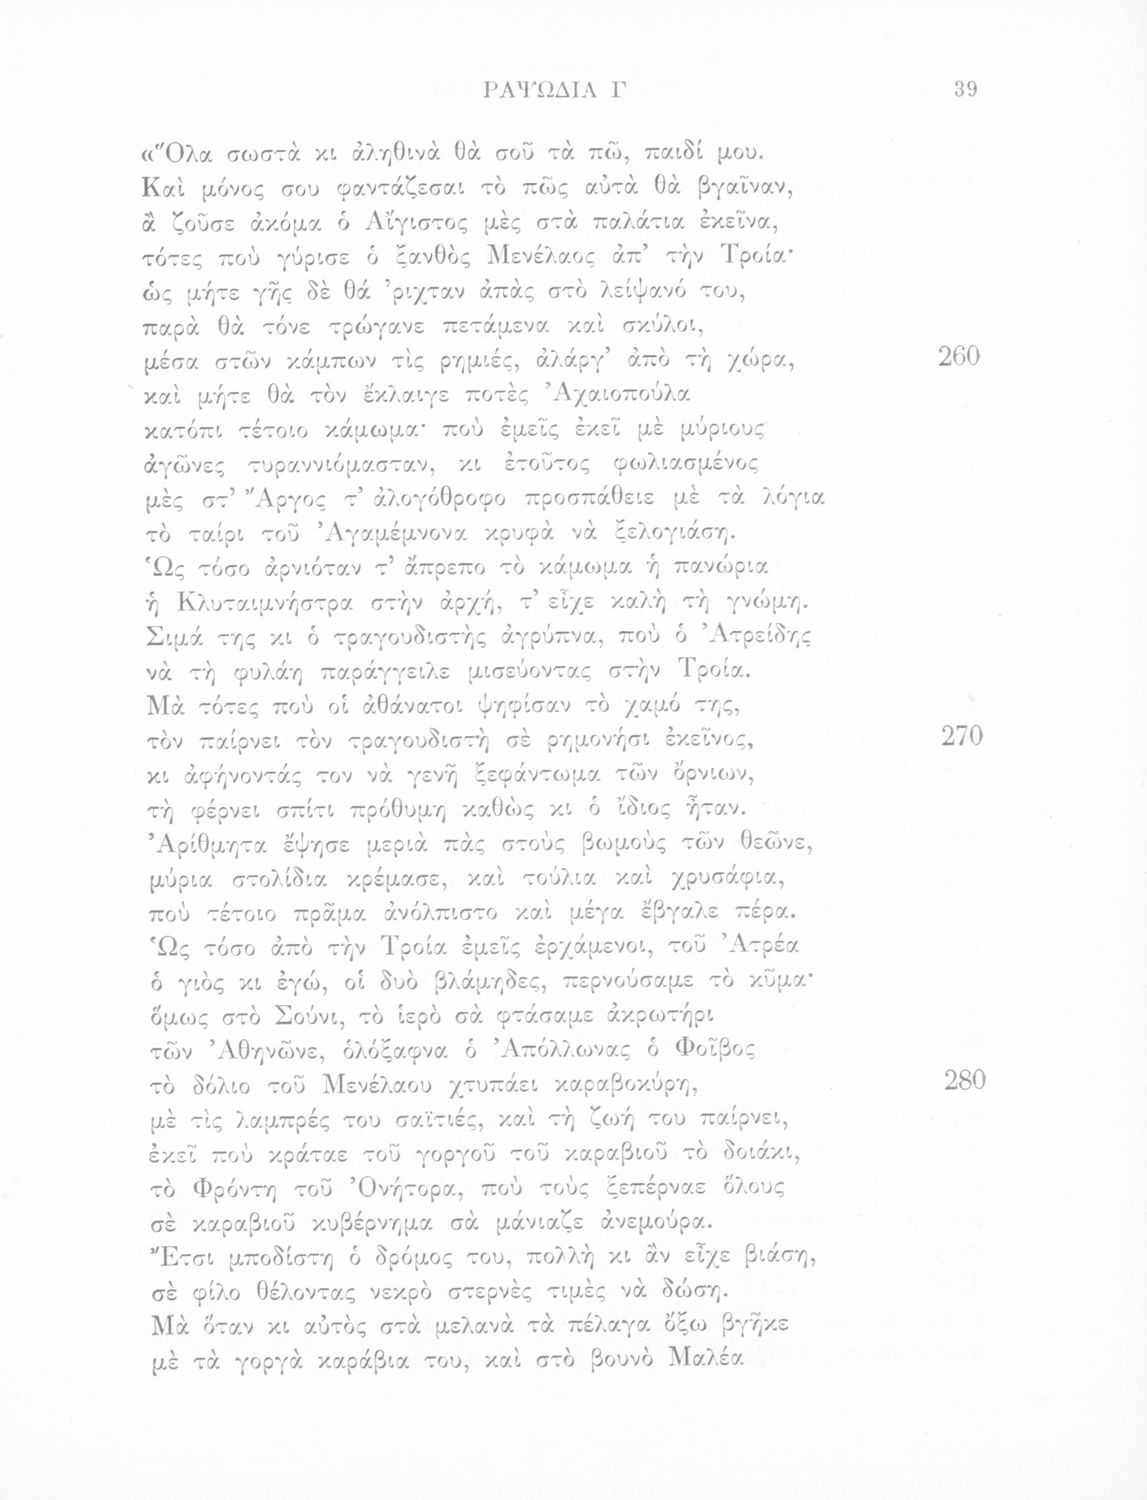 ΡΑΨΩΔΙΑ Γ 39
«Ὅλα σωστὰ κι ἀληθινὰ θὰ σοῦ τὰ πῶ, παιδί μου.
Καὶ μόνος σου φαντάζεσαι τὸ πῶς αὐτὰ θὰ βγαῖναν,
ἃ ζοῦσε ἀκόμα ὁ Αἴγιστος μὲς στὰ παλάτια ἐκεῖνα,
τότες ποὺ γύρισε ὁ ξανθὸς Μενέλαος ἀπ’ τὴν Τροία·
ὡς μήτε γῆς δὲ θά ’ριχταν ἀπὰς στὸ λείψανό του,
παρὰ θὰ τόνε τρώγανε πετάμενα καὶ σκύλοι,
μέσα στῶν κάμπων τὶς ρημιές, ἀλάργ’ ἀπὸ τὴ χώρα, 260
καὶ μήτε θὰ τὸν ἔκλαιγε ποτὲς Ἀχαιοπούλα
κατόπι τέτοιο κάμωμα· ποὺ ἐμεῖς ἐκεῖ μὲ μύριους
ἀγῶνες τυραννιόμασταν, κι ἐτοῦτος φωλιασμένος
μὲς στ’ Ἄργος τ’ ἀλογόθροφο προσπάθειε μὲ τὰ λόγια
τὸ ταίρι τοῦ Ἀγαμέμνονα κρυφὰ νὰ ξελογιάση.
Ὡς τόσο ἀρνιόταν τ’ ἄπρεπο τὸ κάμωμα ἡ πανώρια
ἡ Κλυταιμνήστρα στὴν ἀρχή, τ’ εἶχε καλὴ τὴ γνώμη.
Σιμά της κι ὁ τραγουδιστὴς ἀγρύπνα, ποὺ ὁ Ἀτρείδης
νὰ τὴ φυλάη παράγγειλε μισεύοντας στὴν Τροία.
Μὰ τότες ποὺ οἱ ἀθάνατοι ψηφίσαν τὸ χαμό της,
τὸν παίρνει τὸν τραγουδιστὴ σὲ ρημονήσι ἐκεῖνος, 270
κι ἀφήνοντάς τον νὰ γενῆ ξεφάντωμα τῶν ὄρνιων,
τὴ φέρνει σπίτι πρόθυμη καθὼς κι ὁ ἴδιος ἦταν.
Ἀρίθμητα ἔψησε μεριὰ πὰς στοὺς βωμοὺς τῶν θεῶνε,
μύρια στολίδια κρέμασε, καὶ τούλια καὶ χρυσάφια,
ποὺ τέτοιο πρᾶμα ἀνόλπιστο καὶ μέγα ἔβγαλε πέρα.
Ὡς τόσο ἀπὸ τὴν Τροία ἐμεῖς ἐρχάμενοι, τοῦ Ἀτρέα
ὁ γιὸς κι ἐγώ, οἱ δυὸ βλάμηδες, περνούσαμε τὸ κῦμα·
ὅμως στὸ Σούνι, τὸ ἱερὸ σὰ φτάσαμε ἀκρωτήρι
τῶν Ἀθηνῶνε, ὁλόξαφνα ὁ Ἀπόλλωνας ὁ Φοῖβος
τὸ δόλιο τοῦ Μενέλαου χτυπάει καραβοκύρη, 280
μὲ τὶς λαμπρές του σαϊτιές, καὶ τὴ ζωή του παίρνει,
ἐκεῖ ποὺ κράταε τοῦ γοργοῦ τοῦ καραβιοῦ τὸ δοιάκι,
τὸ Φρόντη τοῦ Ὀνήτορα, ποὺ τοὺς ξεπέρναε ὅλους
σὲ καραβιοῦ κυβέρνημα σὰ μάνιαζε ἀνεμούρα.
Ἔτσι μποδίστη ὁ δρόμος του, πολλὴ κι ἂν εἶχε βιάση,
σὲ φίλο θέλοντας νεκρὸ στερνὲς τιμὲς νὰ δώση.
Μὰ ὅταν κι αὐτὸς στὰ μελανὰ τὰ πέλαγα ὄξω βγῆκε
μὲ τὰ γοργὰ καράβια του, καὶ στὸ βουνὸ Μαλέα